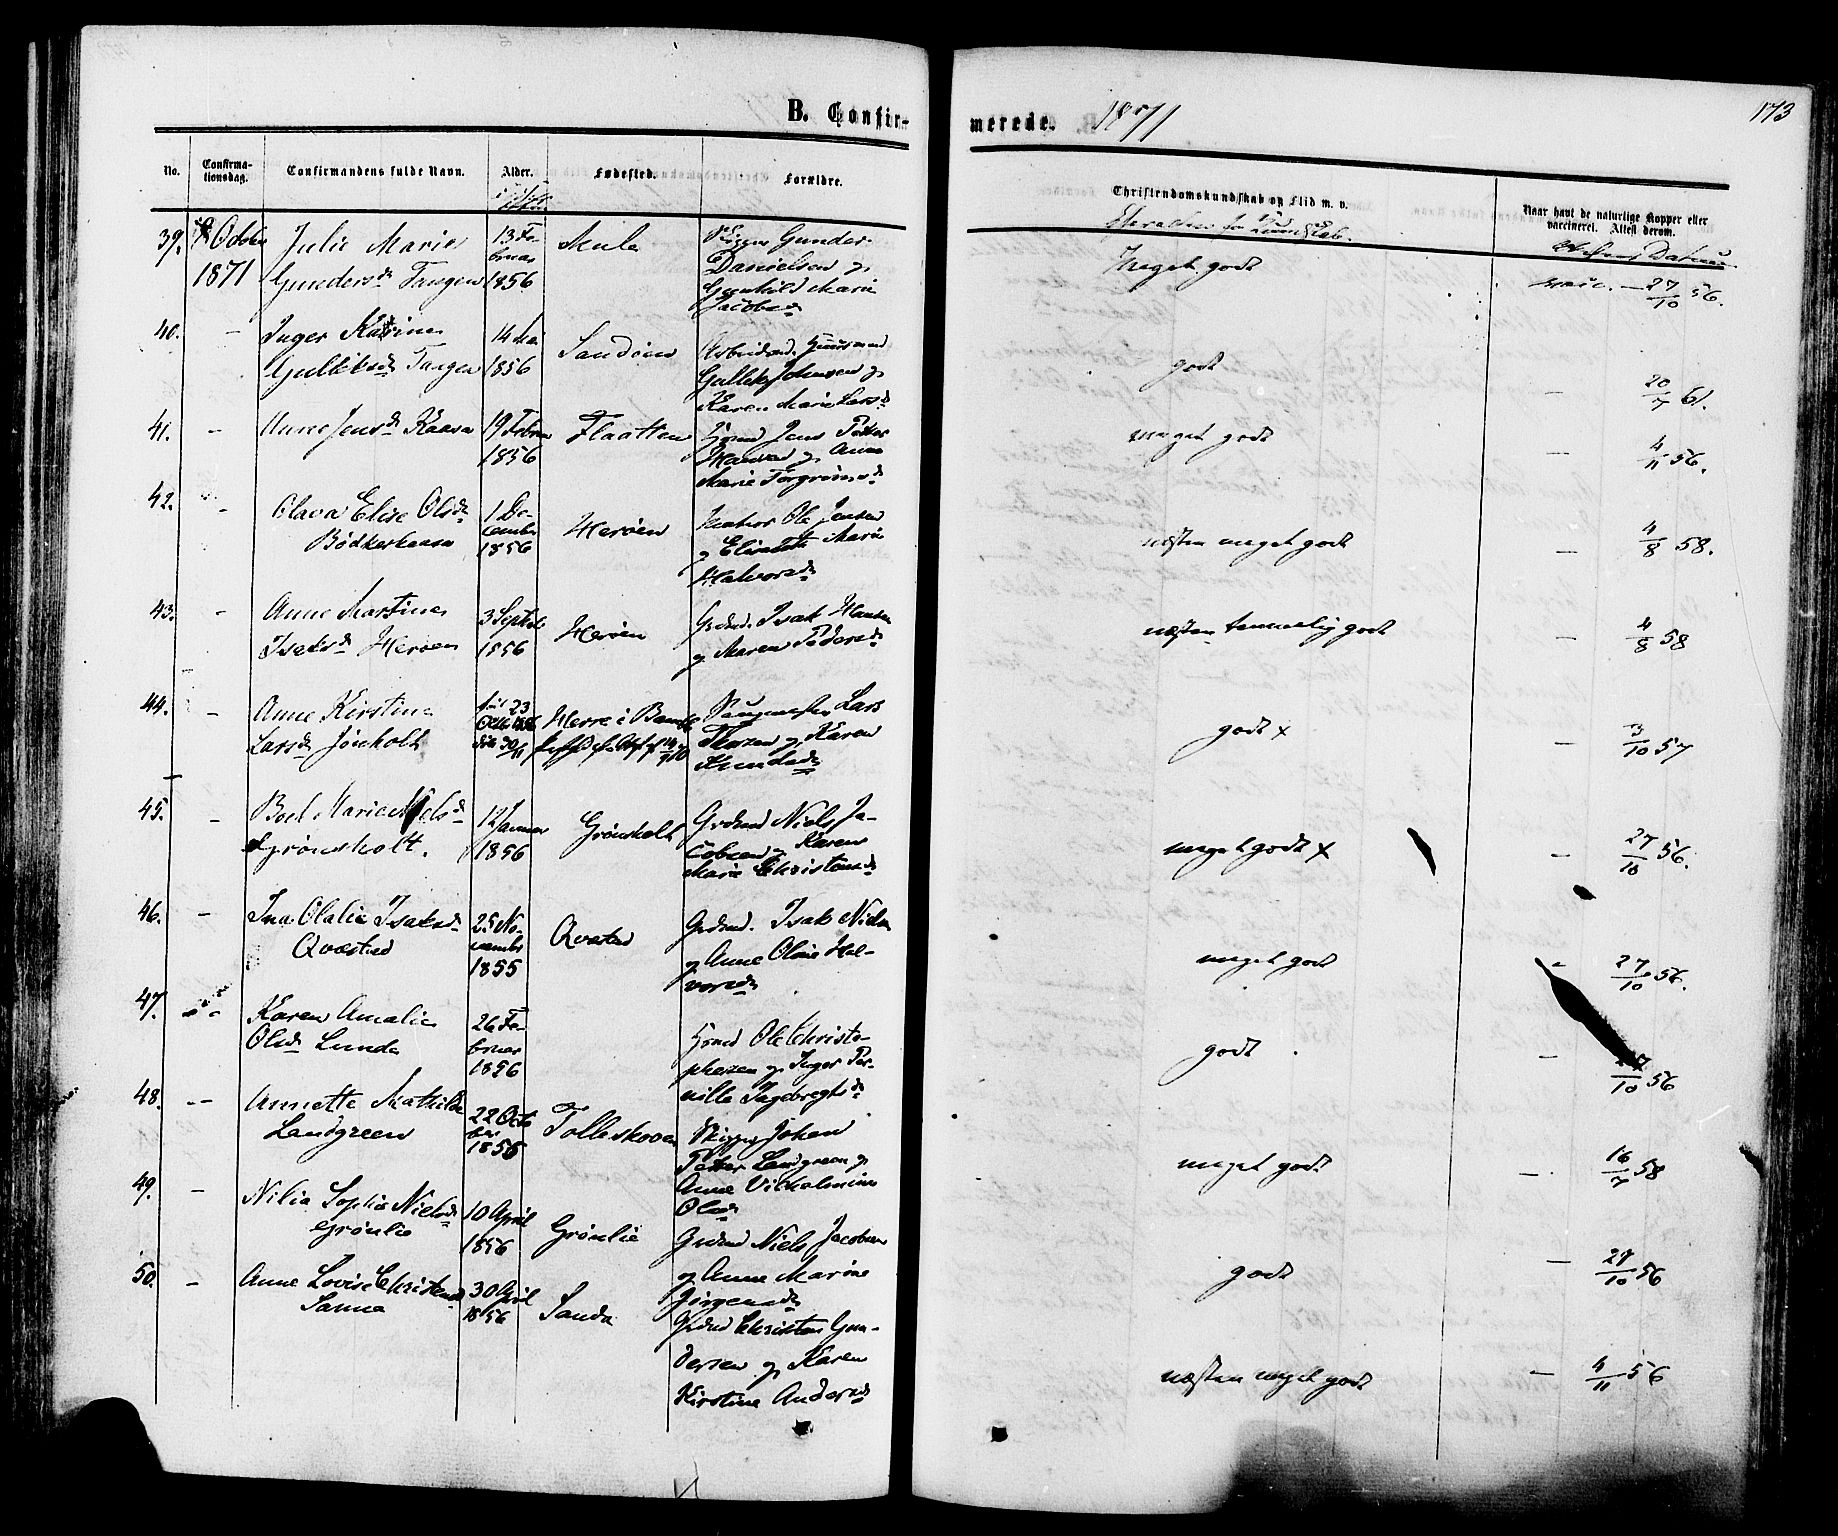 B. Confir-
merede. 1871
173
No.
Confirma-
tionsdag.
Confirmandens fulde Navn.
Alder.
Fødested.
Forældre.
Christendomskundskab og Flid m. v.
Naar havt de naturlige Kopper eller
vaccineret. Attest derom.
39. 8 Octbr 1871
Julie Marie
Gundersd Tangen
13 Fe-
bruar
1856
Mule
Skipper Gunder
Danielsen og
Gunhild Marie
Jacobsd
Meget godt
27/10 56.
40. -
Inger Katrine
Gulliksd Tangen
14 Mai
1856
Sandøen
Arbeidsmd. Huusmand
Gullik Johnsen og
Karen Marie Larsd
godt
- 20/7 61.
41. -
Anne Jensd Kaasa
19 Febru
1856
Flaatten
Hsmd Jens Petter
og Anne
Marie Torgrimsd
meget godt
- 4/11 56.
42. -
Olava Elise Olsd
Bödkerkaasa
1 De-
cember
1856
Herøen
Matros Ole Jensen
og Elisabeth Marie
Halvorsd
næsten meget godt
- 4/8 58.
43. -
Anne Martine
Isaksd Herøen
3 Septbr
1856
Herøen
Grdmd. Isak Hansen
og Maren Pedersd
næsten temmelig godt
- 4/8 58
44. -
Anne Kirstine
Larsd Jønholt
23
Herre i Bamble
Lars
og Karen
Knudsd
godt x
- 3/10 57
45. -
Boel Marie Nielsd
Grønsholt.
12 Januar
1856
Grønsholt
Grdmd Niels Ja-
cobsen og Karen
Marie Christensd
meget godt x
- 27/10 56.
46. -
Ina Olalia Isaksd
Qvæstad
25 No-
vember
1855
Qvæstad
Grdmd. Isak Nielsen
og Anne Oline Hal-
vorsd
meget godt
- 27/10 56.
47. -
Karen Amalie
Olsd Lunde
26 Fe-
bruar
1856
Hsmd Ole Christo-
phersen og Inger Per-
nille Ingebregtsd
godt
- 27/10 56
48. -
Annette Mathilde
Landgreen
22 Octo
ber
1856
Tolleskoven
Skipper Johan
Petter Landgreen og
Anne Vilhelmine
Olsd
meget godt
- 16/7 58
49. -
Nilia Sophie Nielsd
Grønlie
10 April
1856
Grønlie
Grdmd Niels Jacobsen
og Anne Marine
Jørgensd
godt
- 27/10 56
50. -
Anne Lovise Christensd
Sanna
30 April
1856
Sanda
Grdmd Christen Gun-
dersen og Karen
Kirstine Andersd
næsten meget godt
- 4/11 56